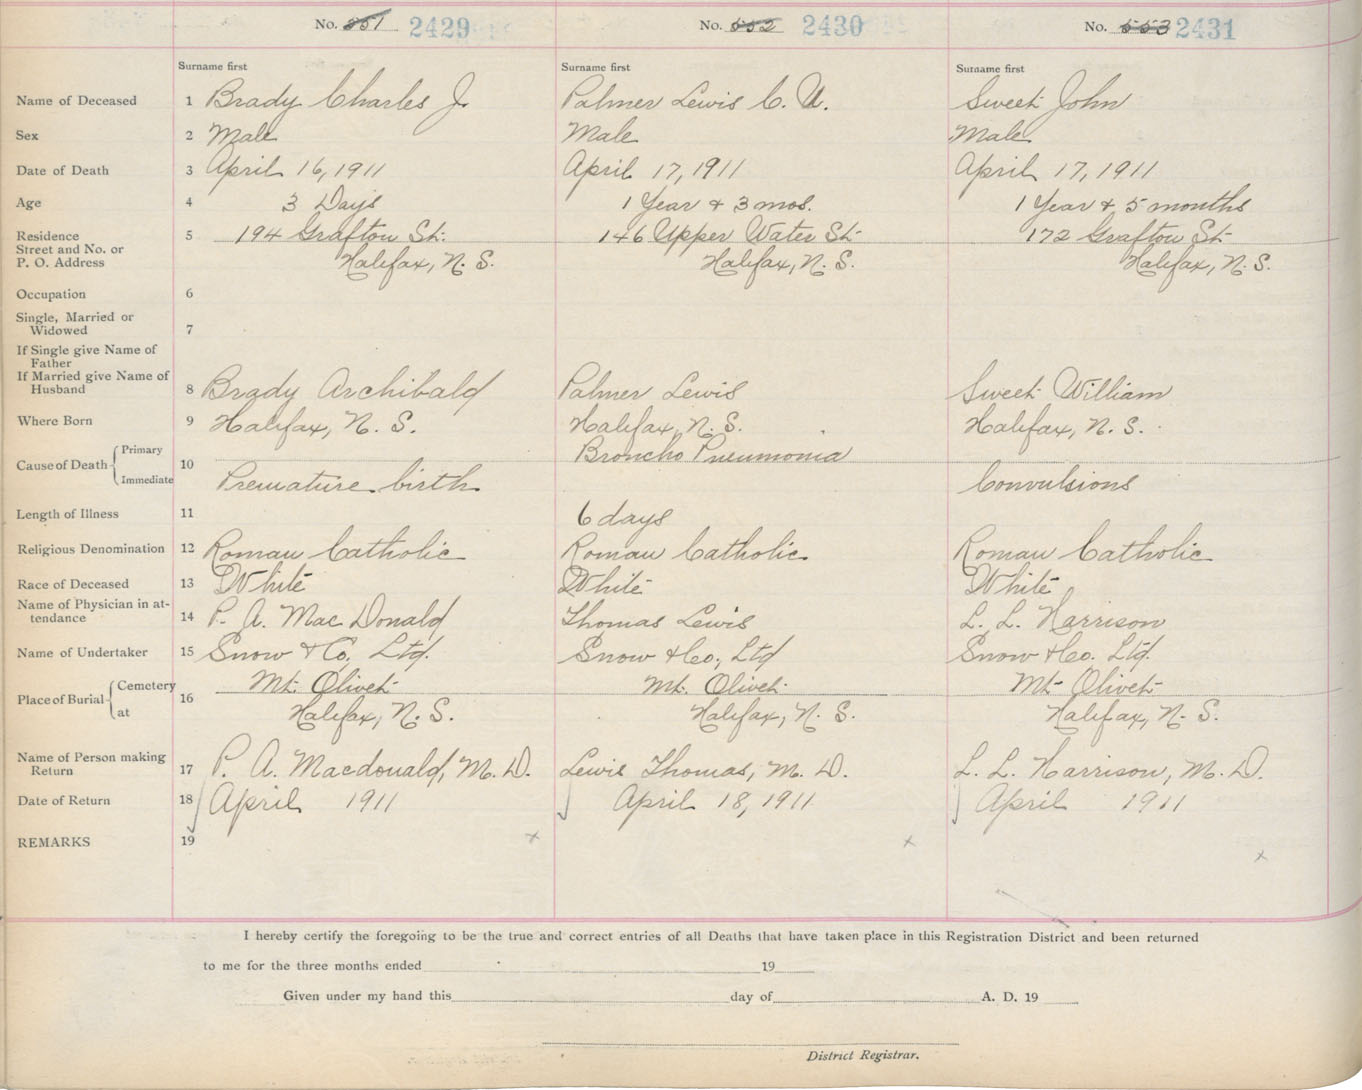 No. 551 2429 No. 552 2430 No. 553 2431
Surname first Surname first Surname first
Name of Deceased 1 Brady Charles J. Palmer Lewis C. U. Sweet John
Sex 2 Male Male Male
Date of Death 3 April 16, 1911 April 17, 1911 April 17, 1911
Age 4 3 Days 1 Year & 3 mos. 1 Year & 5 months
Residence 5 194 Grafton St. 146 Upper Water St. 172 Grafton St.
Street and No. or
P. O. Address Halifax, N. S. Halifax, N. S. Halifax, N. S.
Occupation 6
Single, Married or
Widowed 7
If Single give Name of
Father
If Married give Name of
Husband 8 Brady Archibald Palmer Lewis Sweet William
Where Born 9 Halifax, N. S. Halifax, N. S. Halifax, N. S.
Cause of Death Primary 10 Broncho Pneumonia
Immediate Premature birth Convulsions
Length of Illness 11 6 days
Religious Denomination 12 Roman Catholic Roman Catholic Roman Catholic
Race of Deceased 13 White White White
Name of Physician in at-
tendance 14 P. A. MacDonald Thomas Lewis L. L. Harrison
Name of Undertaker 15 Snow & Co. Ltd. Snow & Co., Ltd Snow & Co. Ltd.
Place of Burial Cemetery 16 Mt. Olivet Mt. Olivet Mt. Olivet
at Halifax, N. S. Halifax, N. S. Halifax, N. S.
Name of Person making
Return 17 P. A. Macdonald, M. D. Lewis Thomas, M. D. L. L. Harrison, M. D.
Date of Return 18 April 1911 April 18, 1911 April 1911
REMARKS 19 x x x
I hereby certify the foregoing to be the true and correct entries of all Deaths that have taken place in this Registration District and been returned
to me for the three months ended 19
Given under my hand this day of A. D. 19
District Registrar.